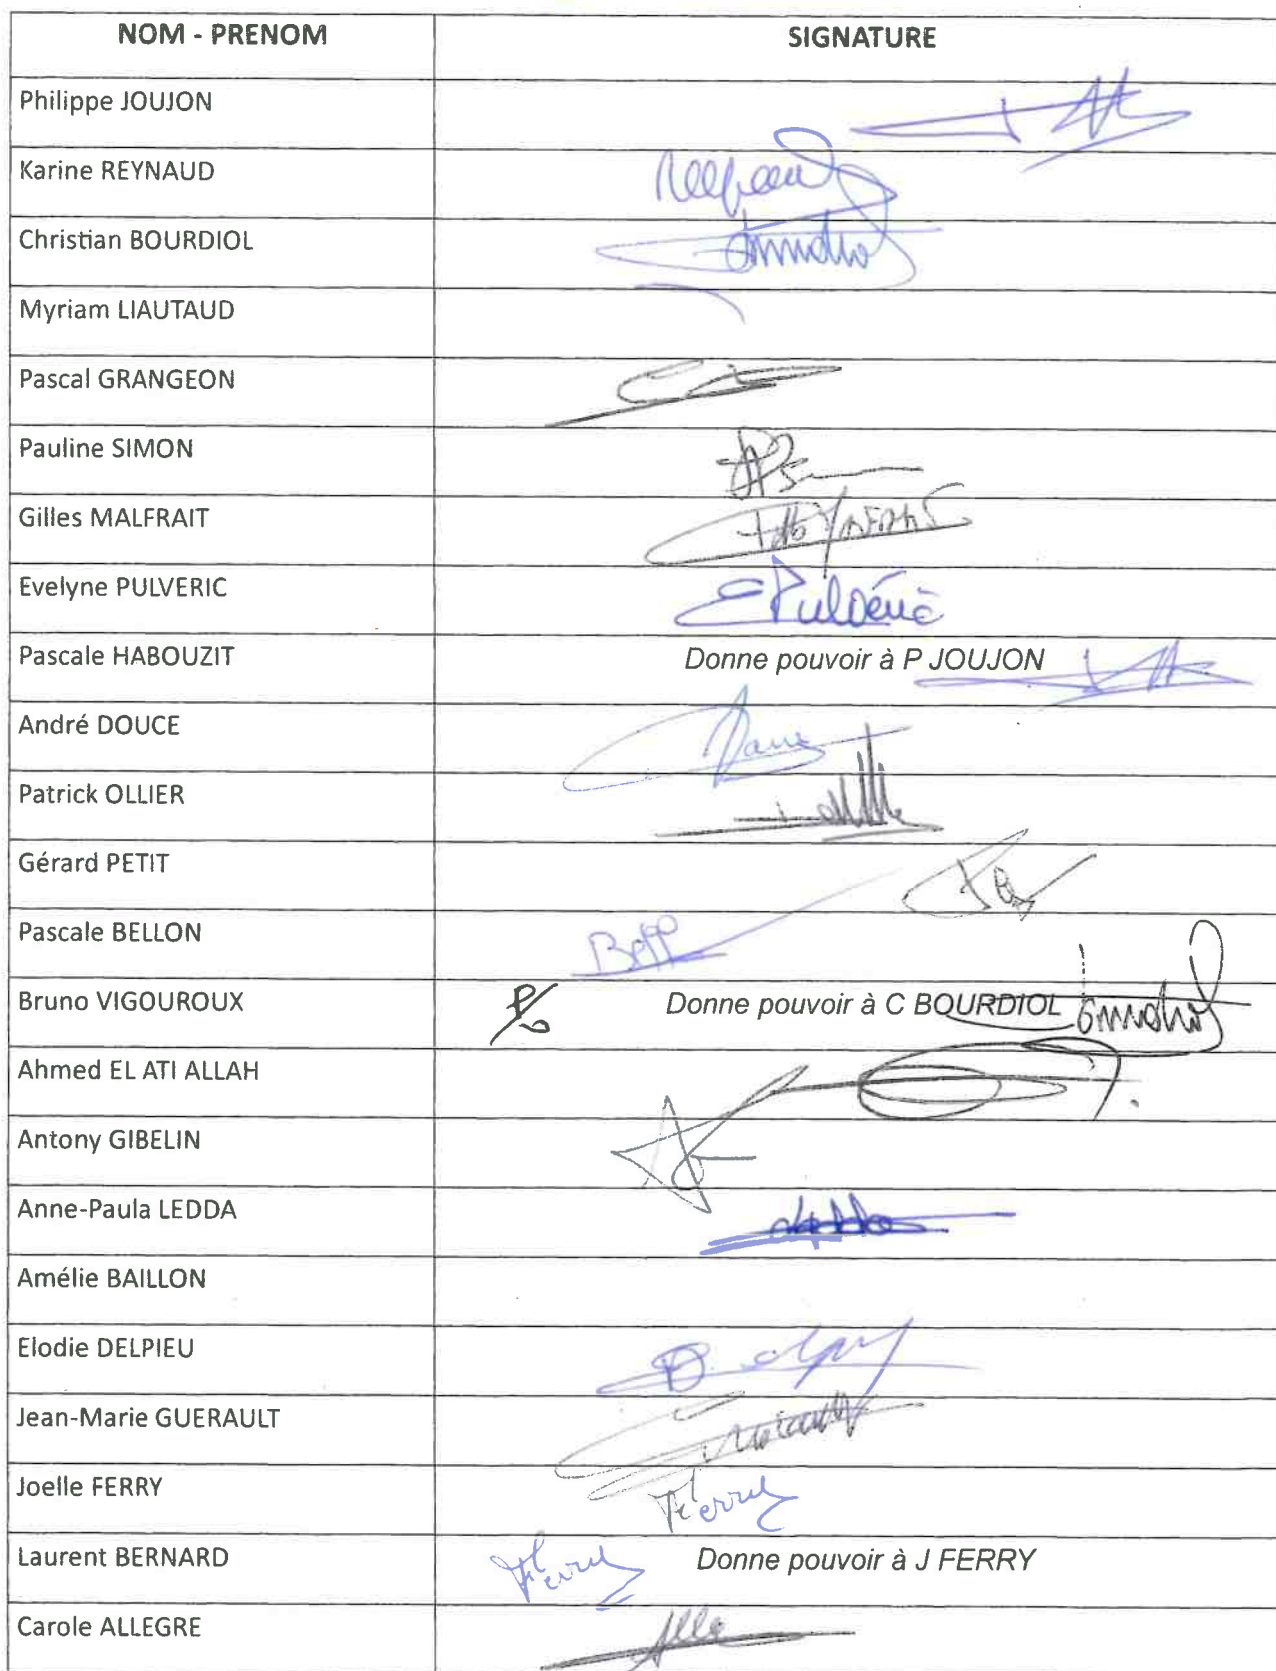 NOM - PRENOM SIGNATURE
Philippe JOUJON
Karine REYNAUD
Christian BOURDIOL
Myriam LIAUTAUD
Pascal GRANGEON
Pauline SIMON
Gilles MALFRAIT
Evelyne PULVERIC EPulvéric
Pascale HABOUZIT Donne pouvoir à P JOUJON
André DOUCE
Patrick OLLIER
Gérard PETIT
Pascale BELLON
Bruno VIGOUROUX P/o Donne pouvoir à C BOURDIOL
Ahmed EL ATI ALLAH
Antony GIBELIN
Anne-Paula LEDDA
Amélie BAILLON
Elodie DELPIEU
Jean-Marie GUERAULT
Joelle FERRY
Laurent BERNARD Donne pouvoir à J FERRY
Carole ALLEGRE